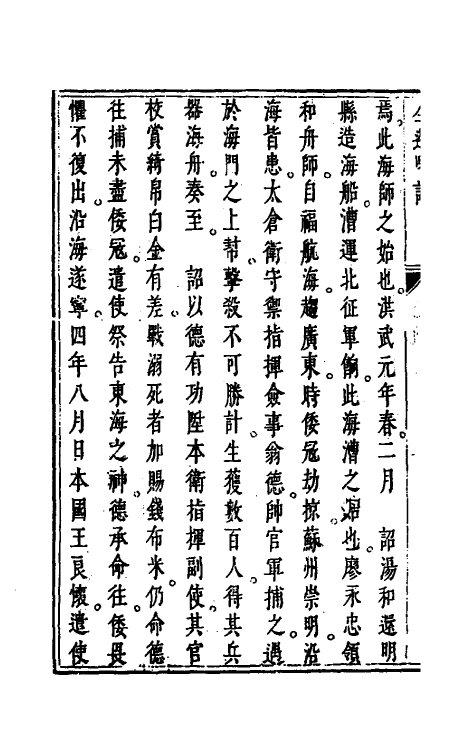 焉此海師之始也洪武元年春二月　詔湯和還明
縣造海船漕運北征軍餉此海漕之始也廖永忠領
和舟師自福航海趨廣東時倭寇劫掠蘇州崇明沿
海皆患太倉衛守禦指揮僉事翁德帥官軍捕之過
於海門之上幇擊殺不可勝計生獲數百人得其兵
器海舟奏至　詔以德有功陞本衛指揮副使其官
校賞綺帛白金有差戰溺死者加賜錢布米仍命德
往捕未盡倭寇遣使祭告東海之神德承命往倭畏
懼不復出沿海遂寧四年八月日本國王良懷遣使